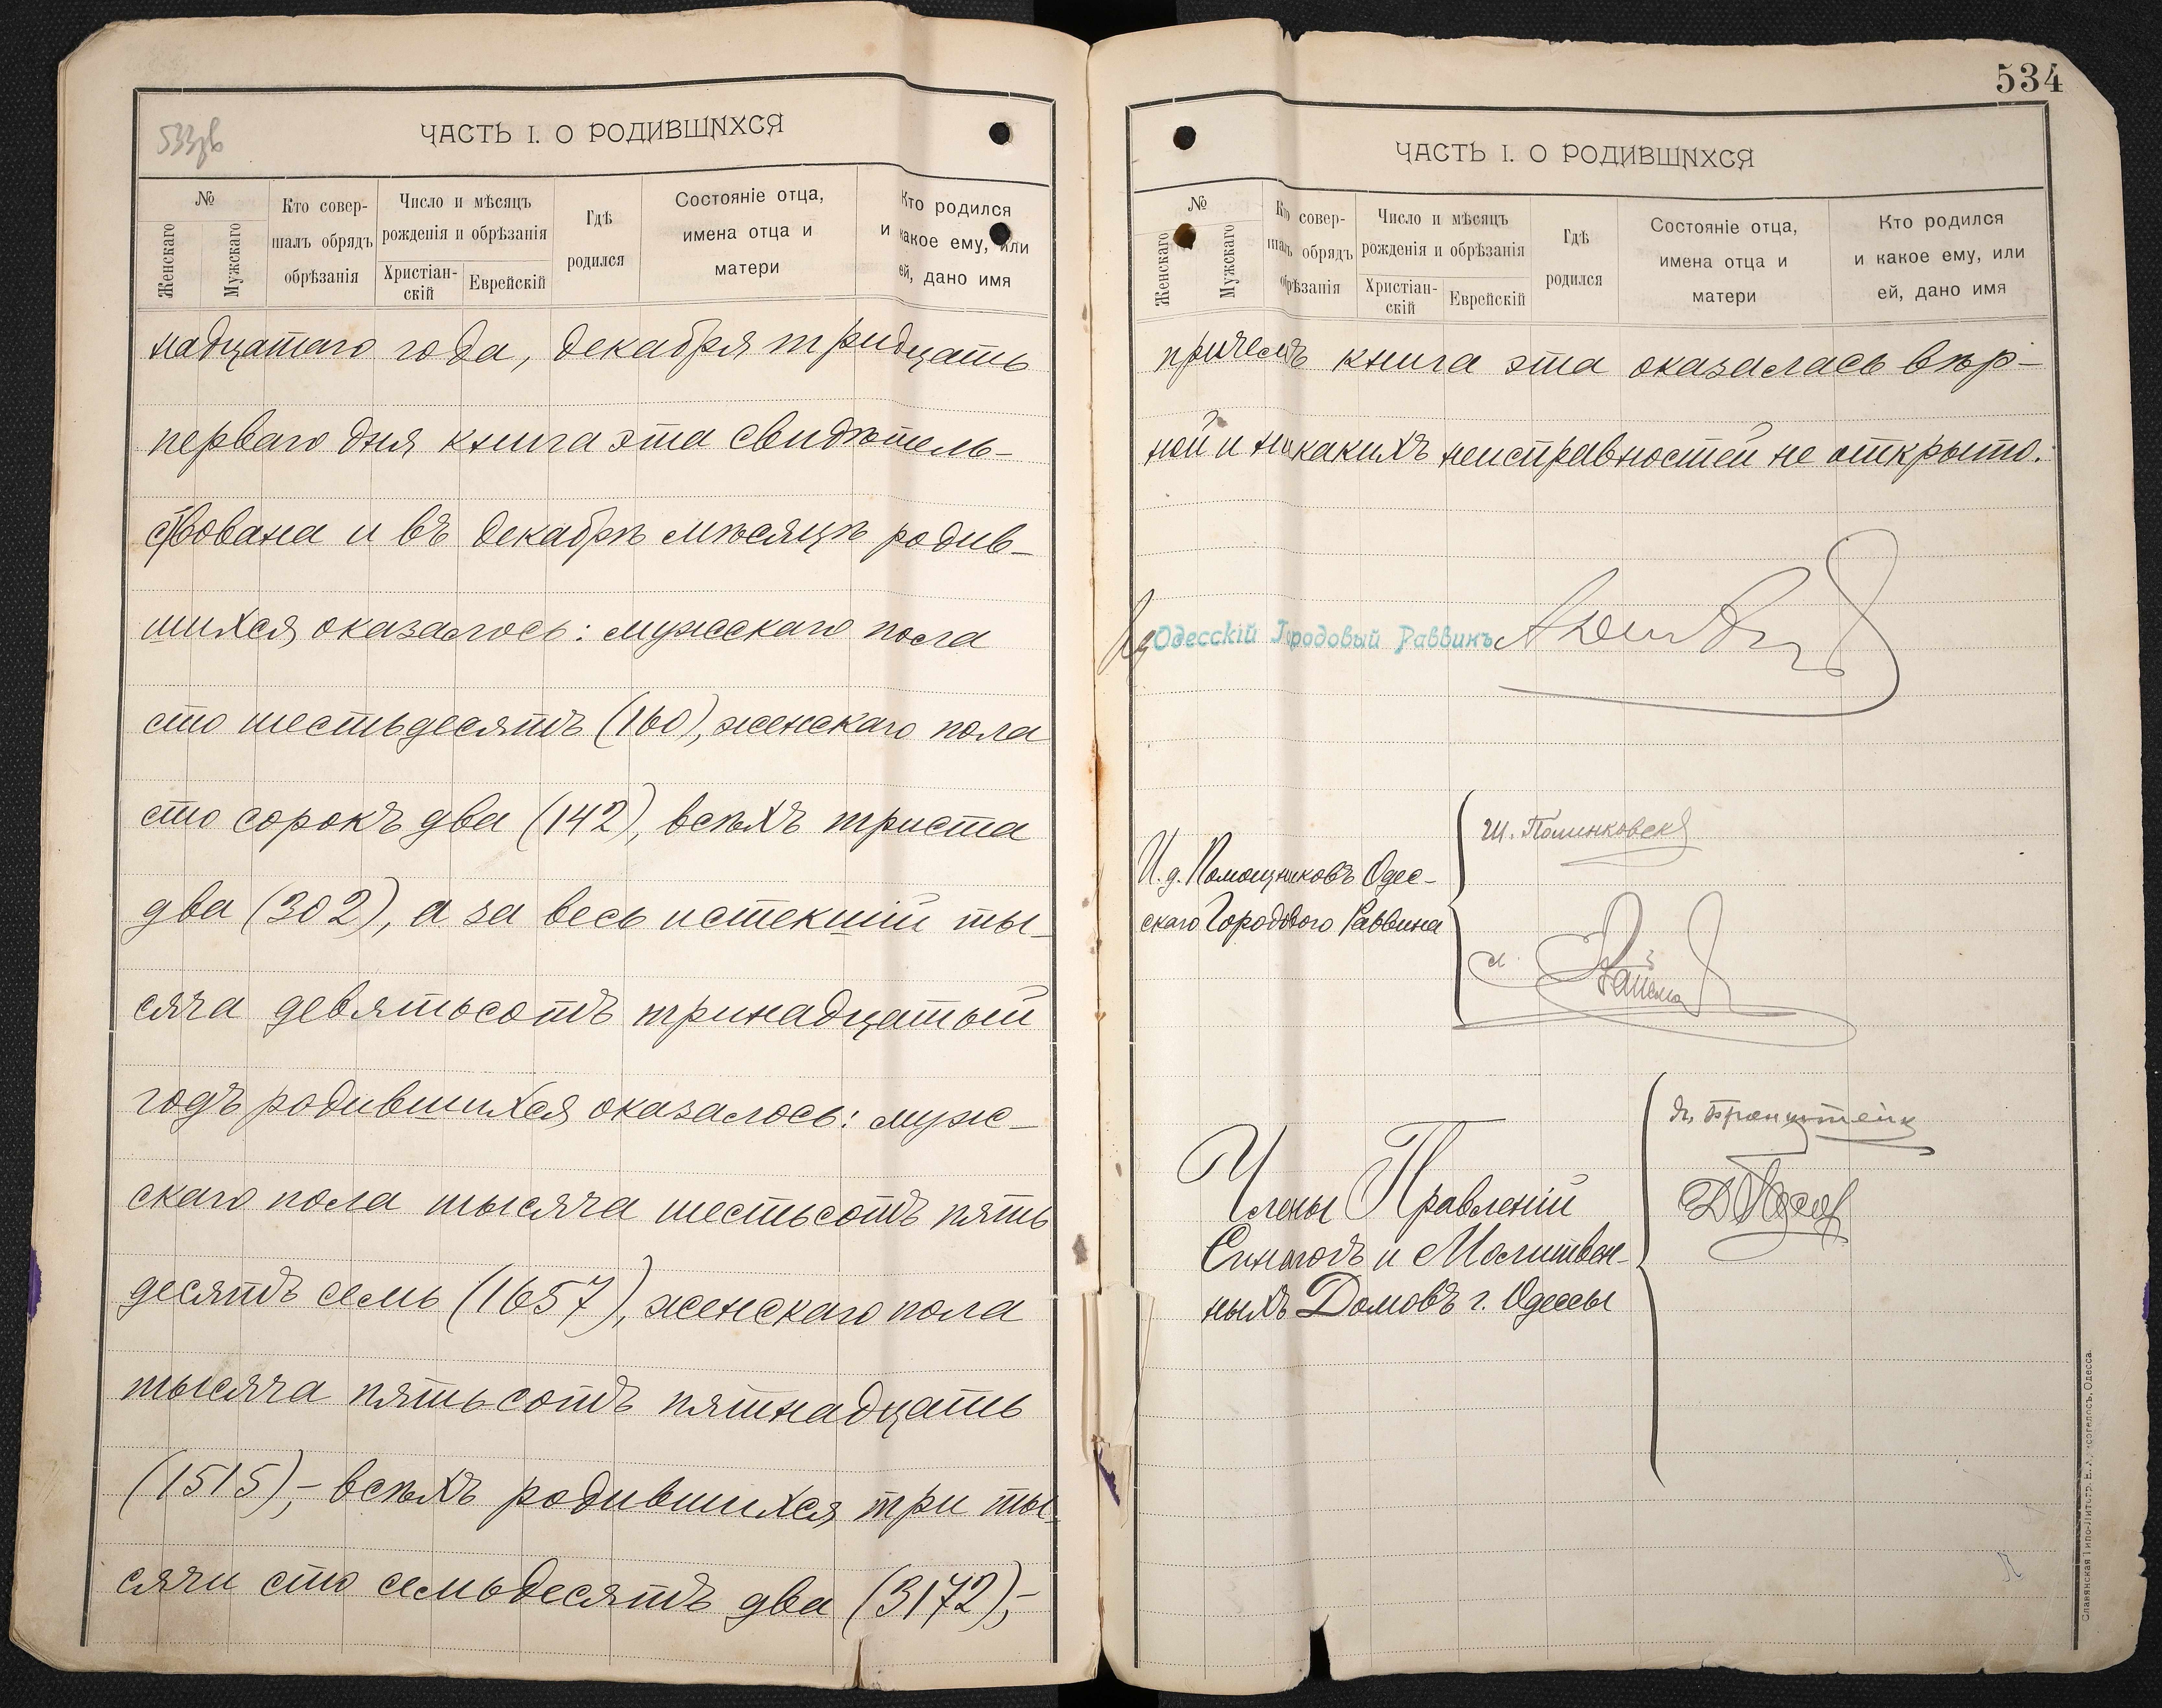 533зв
ЧАСТЬ I. О РОДИВШИХСЯ
№
Женскаго
Мужскаго
Кто совер-
шалъ обрядъ
обрѣзанія
Число и мѣсяцъ
рожденія и обрѣзанія
Христіан-
скій
Еврейскій
Гдѣ
родился
Состояніе отца,
имена отца и
матери
Кто родился
и какое ему, или
ей, дано имя
надцатаго года, декабря тридцать
перваго дня книга эта свидѣтель-
ствована и въ декабрѣ мѣсяцѣ родив-
шихся оказалось: мужскаго пола
сто шестьдесятъ (160), женскаго пола
сто сорокъ два (142), всѣхъ триста
два (302), а за весь истекшій ты-
сяча девятьсотъ тринадцатый
годъ родившихся оказалось: муж-
скаго пола тысяча шестьсотъ пять
десятъ семь (1657), женскаго пола
тысяча пятьсотъ пятнадцать
(1515),- всѣхъ родившихся три ты-
сячи сто семьдесятъ два (3172),-
534
ЧАСТЬ I. О РОДИВШИХСЯ
№
Женскаго
Мужскаго
Кто совер-
шалъ обрядъ
обрѣзанія
Число и мѣсяцъ
рожденія и обрѣзанія
Христіан-
скій
Еврейскій
Гдѣ
родился
Состояніе отца,
имена отца и
матери
Кто родился
и какое ему, или
ей, дано имя
причемъ книга эта оказалась вѣр-
ной и никакихъ неисправностей не открыто.
Одесскій Городовый Раввинъ
И.д. Помощниковъ Одес-
скаго Городового Раввина
Ш. Полинковскій
Члены Правленій
Синагогъ и Молитвен-
ныхъ Домовъ г. Одессы
Бронштейн
Славянская Типо-Литогр. Одесса.